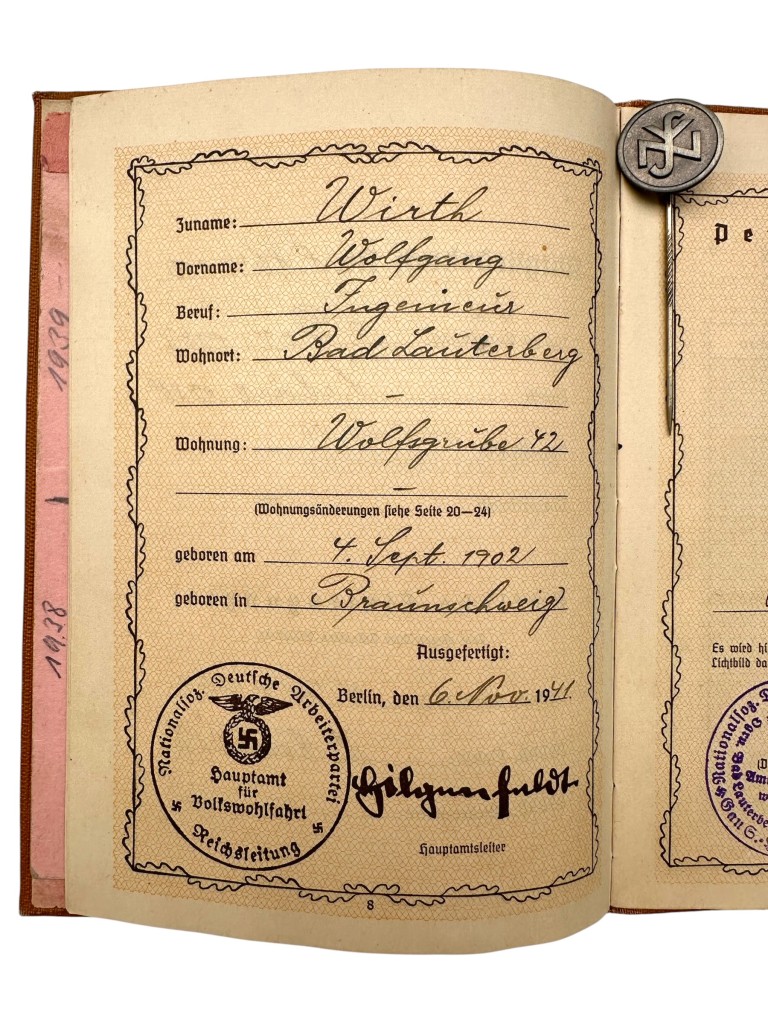 1939
1938
Zuname: Wirth
Vorname: Wolfgang
Beruf: Ingenieur
Wohnort: Bad Lauterberg
–
Wohnung: Wolfsgrube 42
–
(Wohnungsänderungen siehe Seite 20—24)
geboren am 4. Sept. 1902
geboren in Braunschweig
Ausgefertigt:
Berlin, den 6. Nov. 1941.
Nationalsoz. Deutsche Arbeiterpartei
Hauptamt
für
Volkswohlfahrt
Reichsleitung
Hilgenfeldt
Hauptamtsleiter
8
NSV
Pe
Es wird hi
Lichtbild da
Nationalsoz. D
Bad Lauterbe
Gau S.-